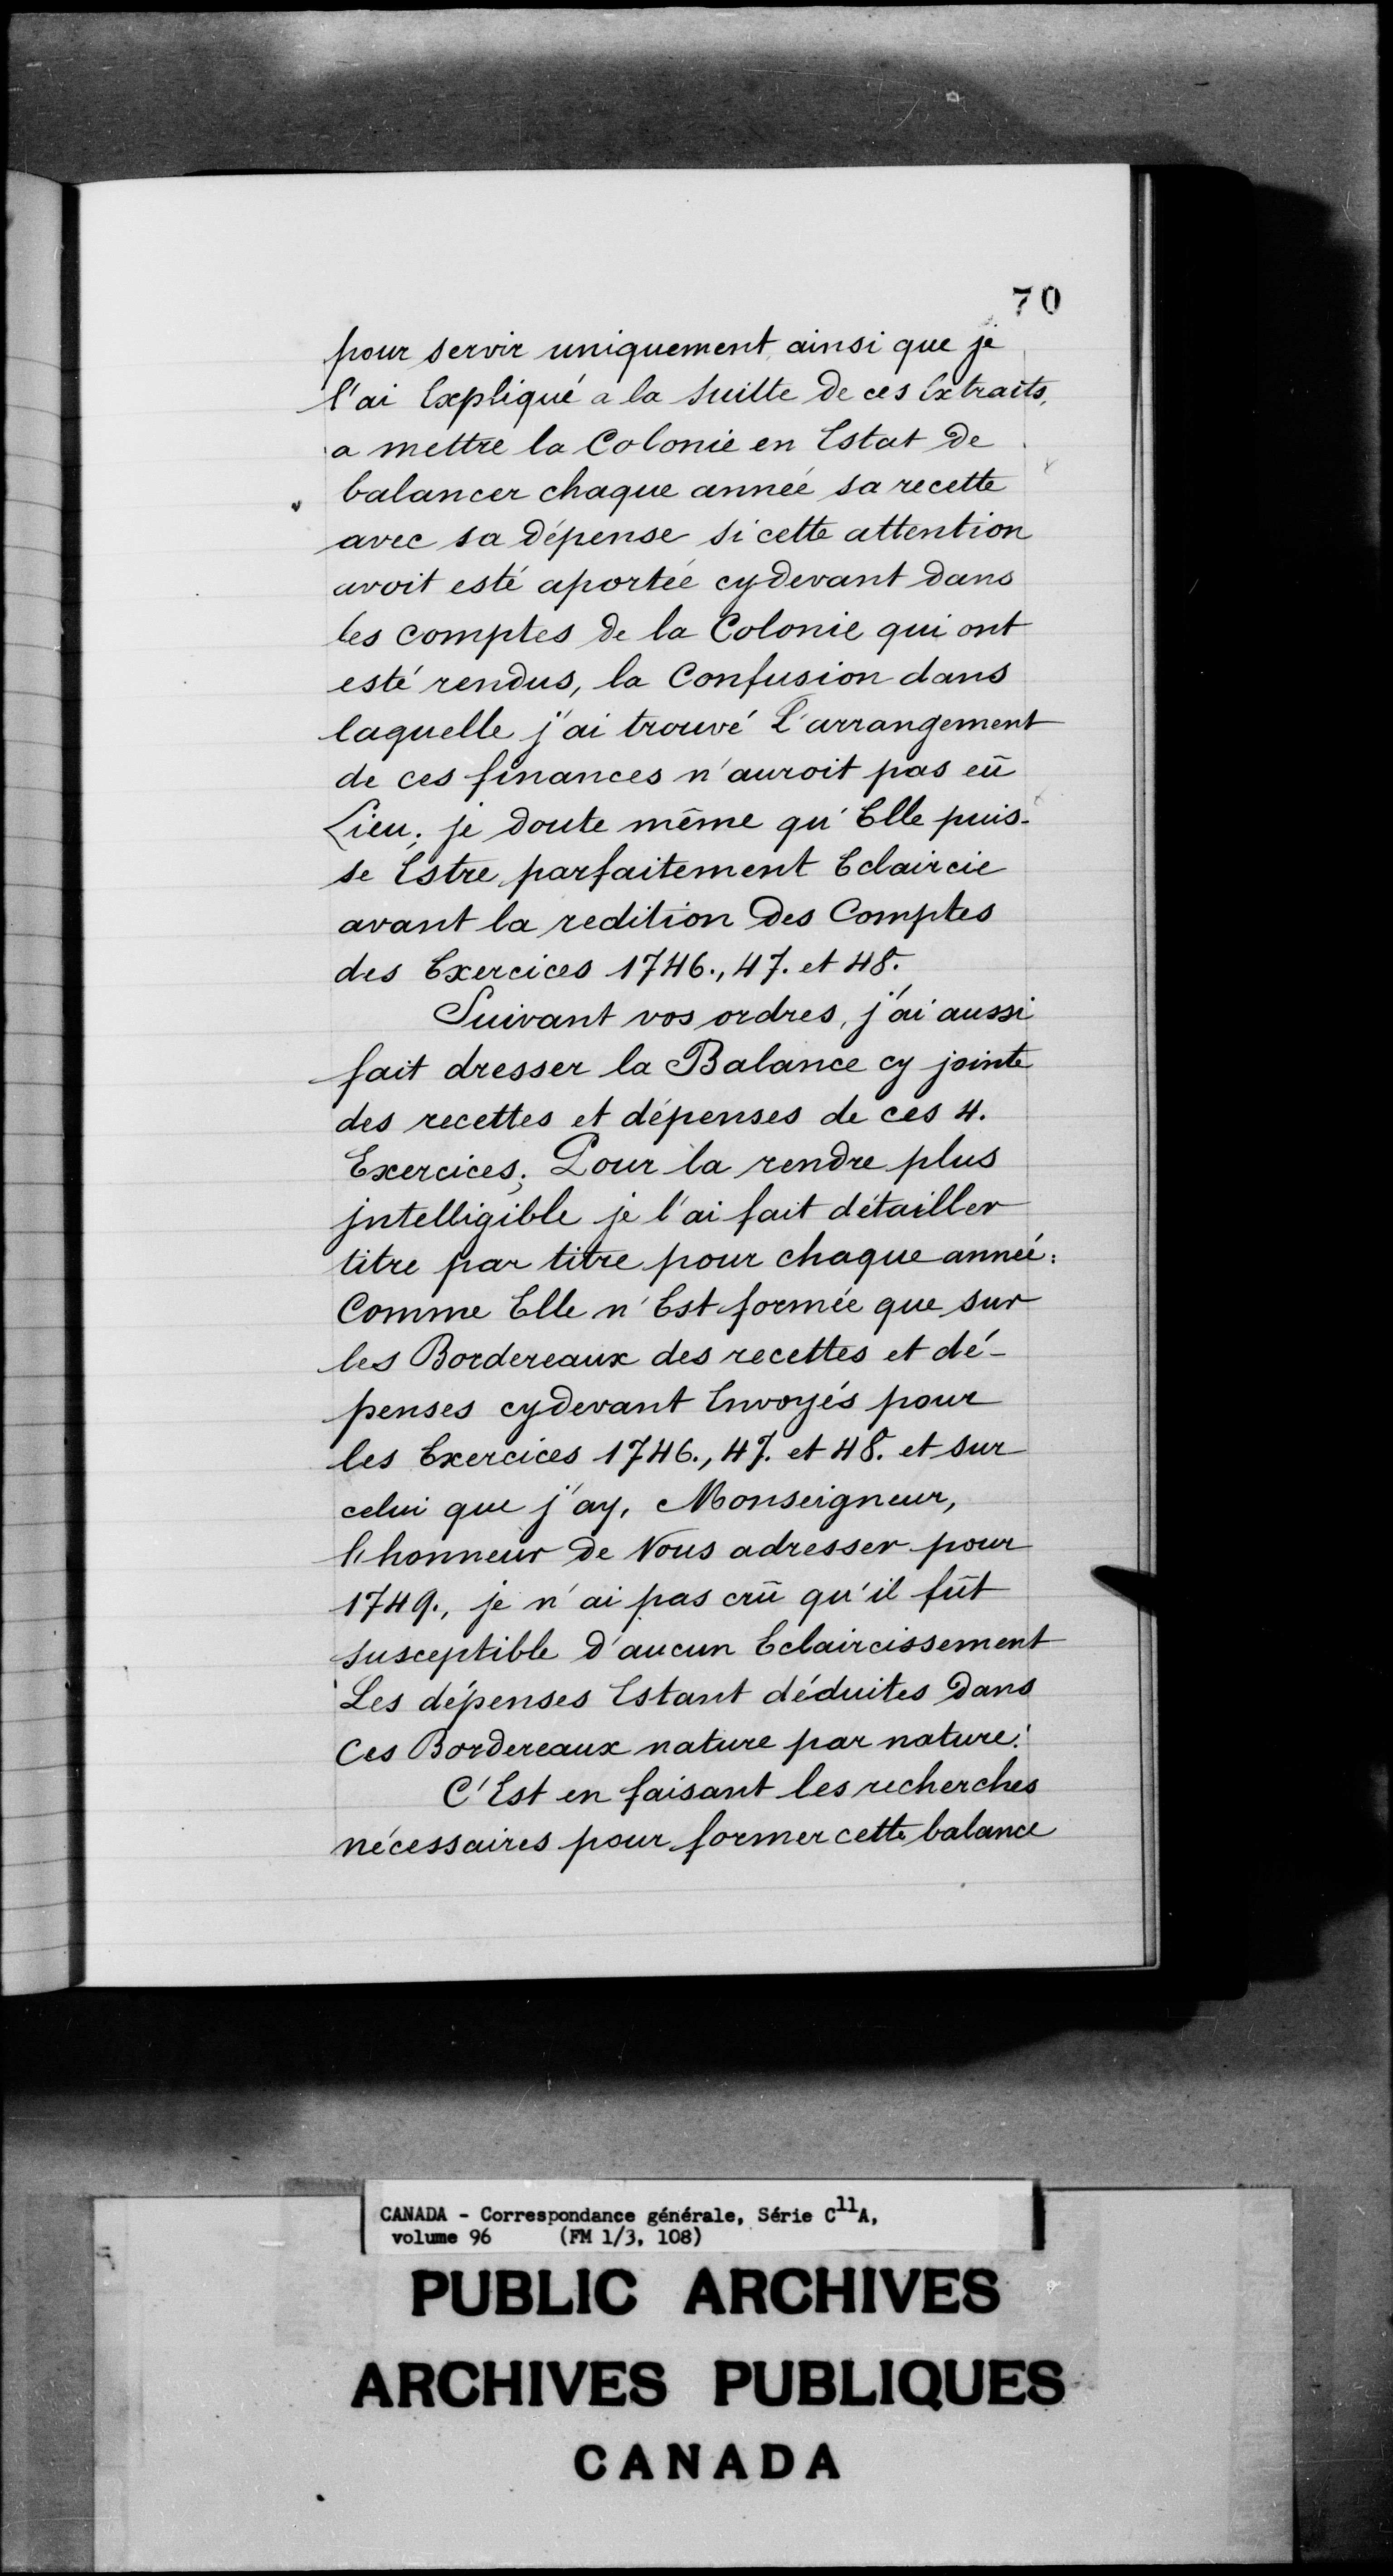 70
pour servir uniquement, ainsi que je
l'ai Expliqué a la Suitte de ces Extraits,
a mettre la Colonie en Estat de
balancer chaque année sa recette
avec sa dépense si cette attention
avoit esté aportée cydevant dans
les comptes de la Colonie qui ont
esté rendus, la Confusion dans
laquelle j'ai trouvé L'arrangement
de ces finances n'auroit pas eû
Lieu; je doute même qu'Elle puis-
se Estre parfaitement Eclaircie
avant la redition des Comptes
des Exercices 1746., 47. et 48.
Suivant vos ordres, j'ai aussi
fait dresser la Balance cy jointe
des recettes et dépenses de ces 4.
Exercices; Pour la rendre plus
jntelligible je l'ai fait détailler
titre par titre pour chaque année:
Comme Elle n'Est formée que sur
les Bordereaux des recettes et dé-
penses cydevant Envoyés pour
les Exercices 1746., 47. et 48. et sur
celui que j'ay, Monseigneur,
l'honneur de Vous adresser pour
1749., je n'ai pas crû qu'il fût
susceptible d'aucun Eclaircissement
Les dépenses Estant déduites dans
Ces Bordereaux nature par nature.
C'Est en faisant les recherches
nécessaires pour former cette balance
CANADA - Correspondance générale, Série C11A,
volume 96 (FM 1/3, 108)
PUBLIC ARCHIVES
ARCHIVES PUBLIQUES
CANADA